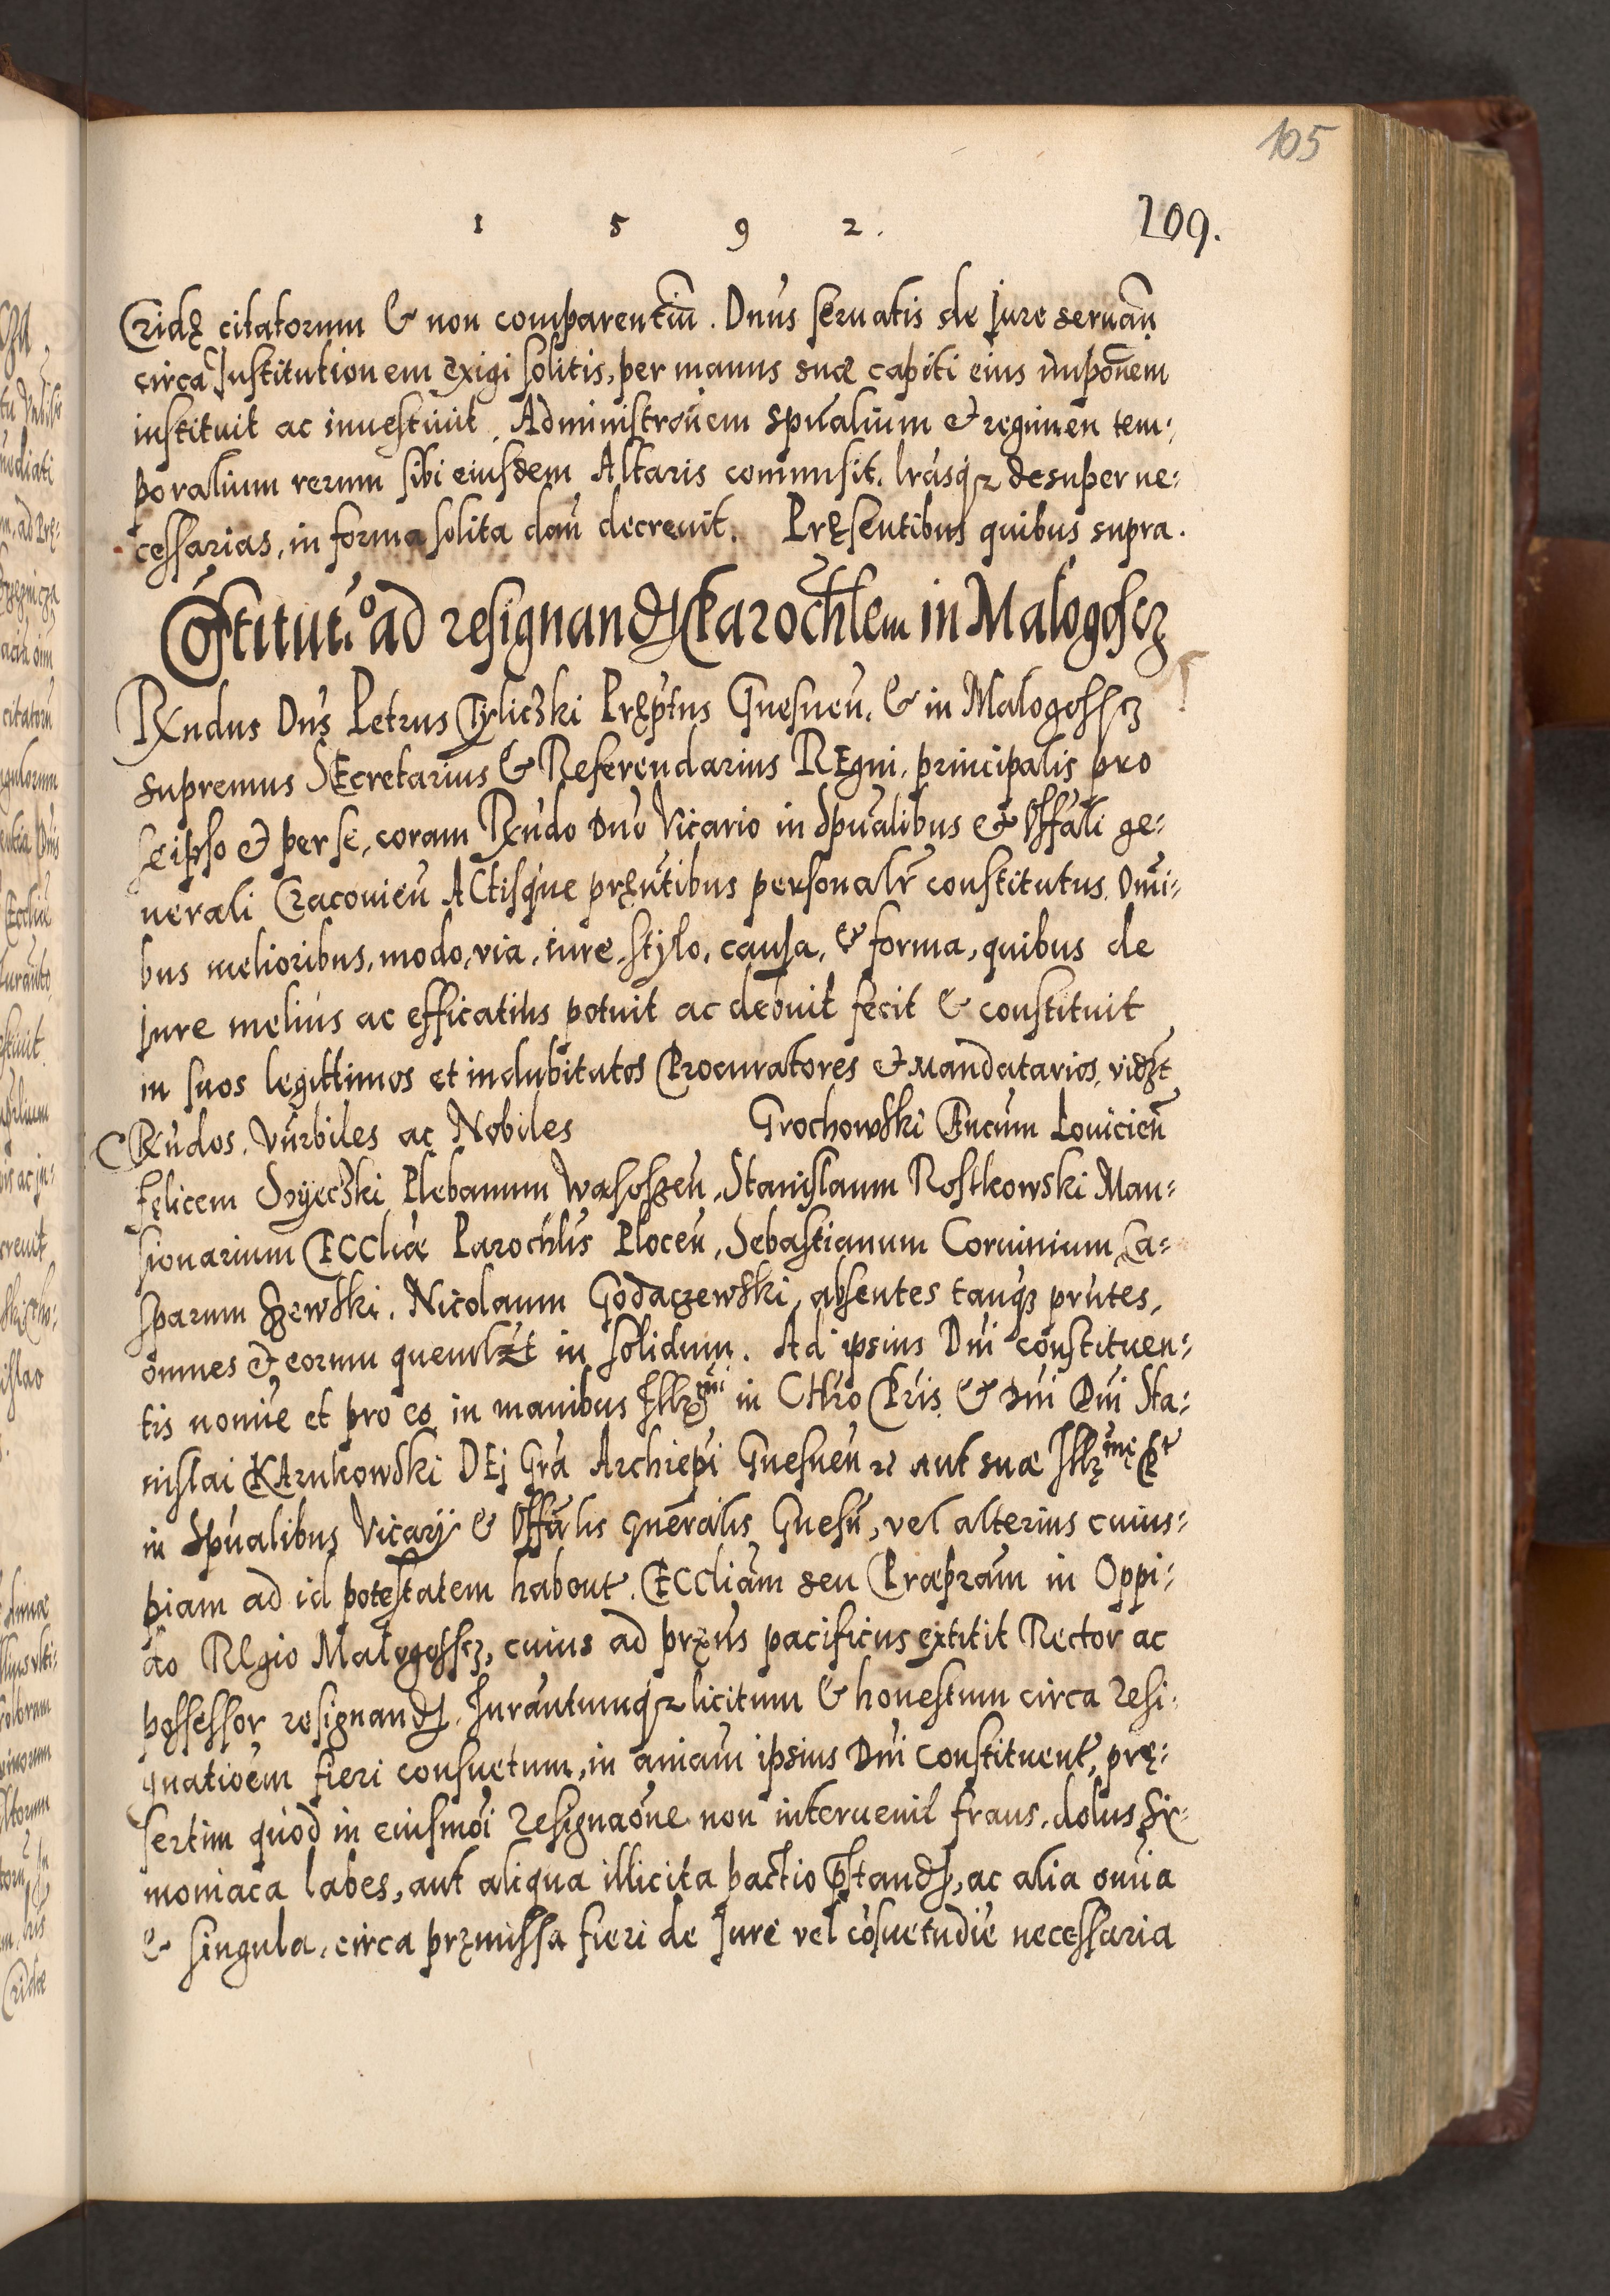 105
1 5 9 2.
209.
Cridę citatorum & non comparentiū. Dnūs seruatis de Iure seruan̄
circa Institutionem exigi solitis, per manus suæ capiti eius impon̄em
instituit ac inuestiuit. Administrōnem spūalium & regimen tem:
poralium rerum sibi eiusdem Altaris commisit. lrāsq̨ desuper ne:
cessarias, in forma solita dan̄ decreuit. Pręsentibus quibus supra.
Cōstitut.º ad resignandā Parochlēm in Malogoscz
Rxndus Dn̄s Petrus Tyliczki Pręptūs Gnesnen̄. & in Malogosscz
supremus SEcretarius & Referendarius REgni, principalis pro
seipso & per se, coram Rxn̄do Dn̄o Vicario in Spūalibus & Offāli ge:
nerali Cracouien̄ ACtisq̨ue pręn̄tibus personalr̄ constitutus. Omī:
bus melioribus, modo, via, iure, stylo, causa, & forma, quibus de
Iure melius ac efficatius potuit ac debuit fecit & constituit
in suos legittimos et indubitatos Procuratores & Mandatarios, vidzt
Rxn̄dos. Vūrbiles ac Nobiles Grochowski Louicien̄
Fęlicem Plebanum Wasoszen̄, Stanislaum Rostkowski Man:
sionarium ECCliæ Parochlīs Plocen̄, Sebastianum Coruinium, Ca:
sparum Szewski. Nicolaum Godaczewski, absentes tanq̨ prn̄tes,
omnes & eorum quemlzt in solidum. Ad ipsius Dn̄i constituen:
tis nomīe et pro eo in manibus Illr̄mi in CHro Pr̄is & Dn̄i Dn̄i Sta:
nislai KArnkowski DEj Grā Archiepī Gnesnen̄ aut suæ Illr̄mę
in Spūalibus Vicarij & Offālis gnēralis Gnesn̄, vel alterius cuius:
piam ad id potestatem habent. ECCliām seu Præpr̄am in Oppi:
do REgio Malogossz, cuius ad pręns̄ pacificus extitit Rector ac
possessor resignandā. Iurān̄tumq̨ licitum & honestum circa resi:
gnatioēm fieri consuetum, in aniām ipsius Dn̄i constituent, prę:
sertim quod in eiusmōi resignaōne non interuenit fraus, dolus Sy:
moniaca labes, aut aliqua illicita pactio pr̄standā, ac alia omīa
& singula, circa pręmissa fieri de Iure vel cōsuetudīe necessaria